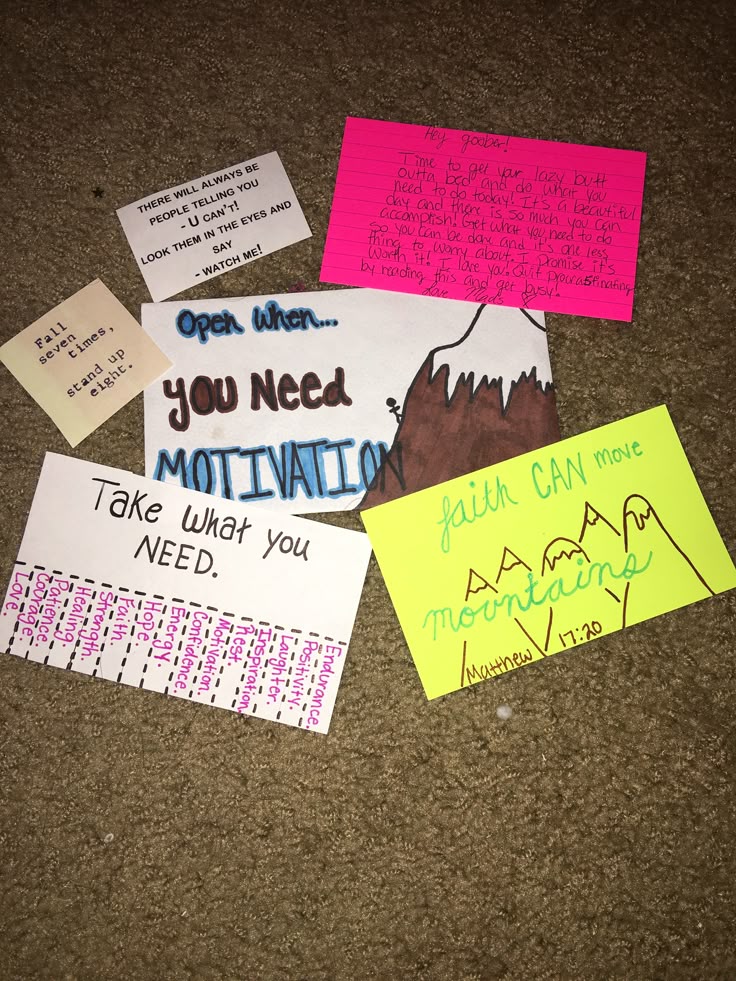 THERE WILL ALWAYS BE
PEOPLE TELLING YOU
- U CAN'T!
LOOK THEM IN THE EYES AND
SAY
- WATCH ME!
Hey goober!
Time to get your lazy butt
outta bed and do what you
need to do today! It's a beautiful
day and there is so much you can
accomplish! Get what you need to do
so you can be day and it's one less
thing to worry about. I promise it's
worth it! I love you! Quit procrastinating
by reading this and get busy!
Love
Fall
seven
times,
stand up
eight.
Open When...
YOU NEED
MOTIVATION
Take what you
NEED.
Love.
Courage.
Patience.
Healing.
Strength.
Faith.
Hope.
Energy.
Confidence.
Motivation.
Rest.
Inspiration.
Laughter.
Positivity.
Endurance.
faith CAN move
mountains
Matthew 17:20